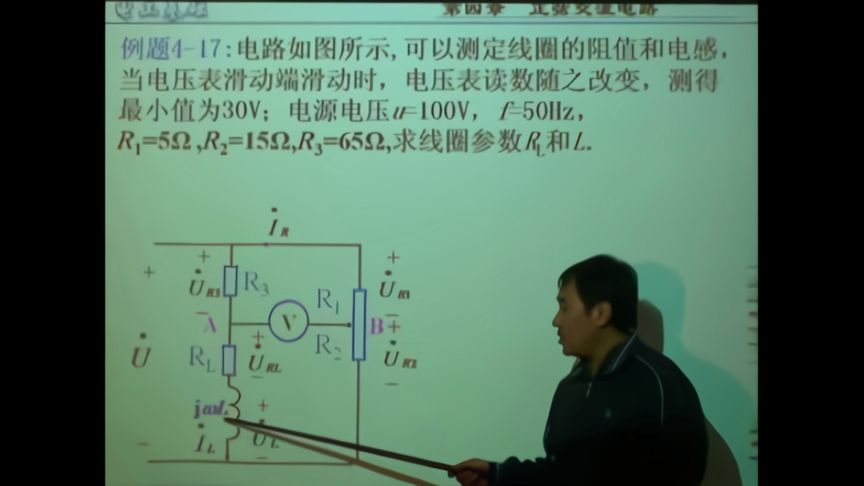 第四章 正弦交流电路
例题4-17:电路如图所示,可以测定线圈的阻值和电感,
当电压表滑动端滑动时,电压表读数随之改变,测得
最小值为30V;电源电压u=100V,f=50Hz,
R1=5Ω,R2=15Ω,R3=65Ω,求线圈参数RL和L.
İR
+ + +
U̇R3 R3 U̇R1
R1
− A V B +
U̇ RL + U̇RL R2 U̇R2
− −
jωL +
− İL U̇L
−